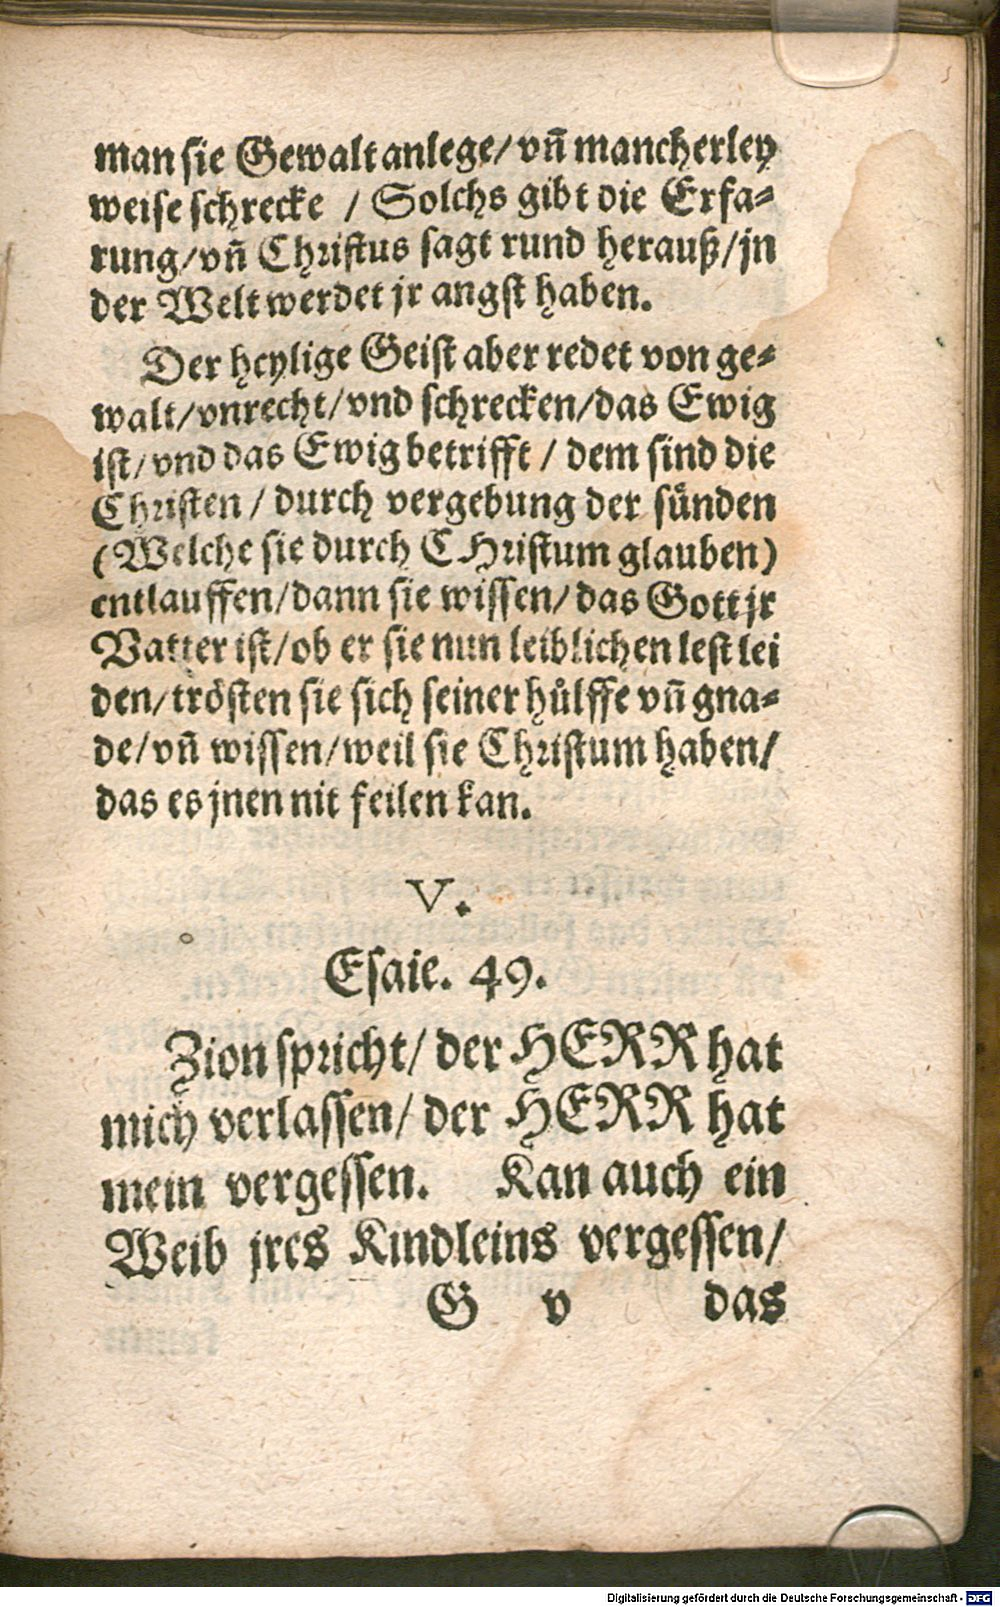 man sie Gewalt anlege/ vñ mancherley
weise schrecke / Solchs gibt die Erfa-
rung/ vñ Christus sagt rund herauß/ jn
der Welt werdet jr angst haben.
Der heylige Geist aber redet von ge-
walt/ vnrecht/ vnd schrecken/ das Ewig
ist/ vnd das Ewig betrifft / dem sind die
Christen / durch vergebung der sünden
(Welche sie durch CHristum glauben)
entlauffen/ dann sie wissen/ das Gott jr
Vatter ist/ ob er sie nun leiblichen lest lei
den/ trösten sie sich seiner hůlffe vñ gna-
de/ vñ wissen/ weil sie Christum haben/
das es jnen nit feilen kan.
V.
Esaie. 49.
Zion spricht/ der HERR hat
mich verlassen/ der HERR hat
mein vergessen. Kan auch ein
Weib jres Kindleins vergessen/
G v das
Digitalisierung gefördert durch die Deutsche Forschungsgemeinschaft - DFG